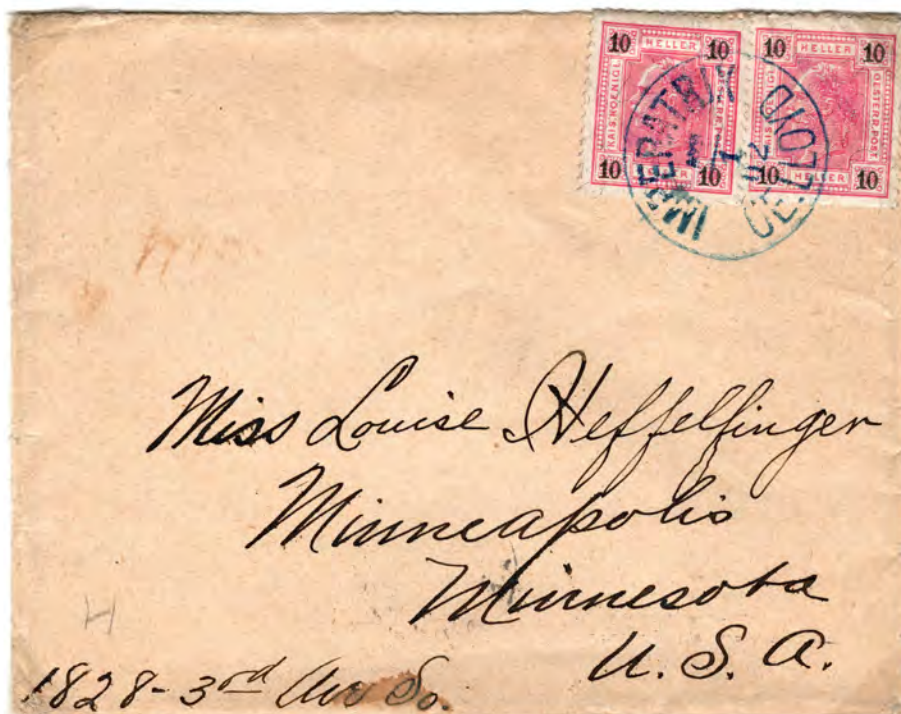 10 HELLER 10
KAIS.KOENIGL. OESTERR.POST
10 HELLER 10
10 HELLER 10
OESTERR.POST
10 HELLER 10
IMPERATRIX
OE. LLOYD
02
Miss Louise Heffelfinger
Minneapolis
Minnesota
U. S. A.
H
1828 - 3rd Ave So.